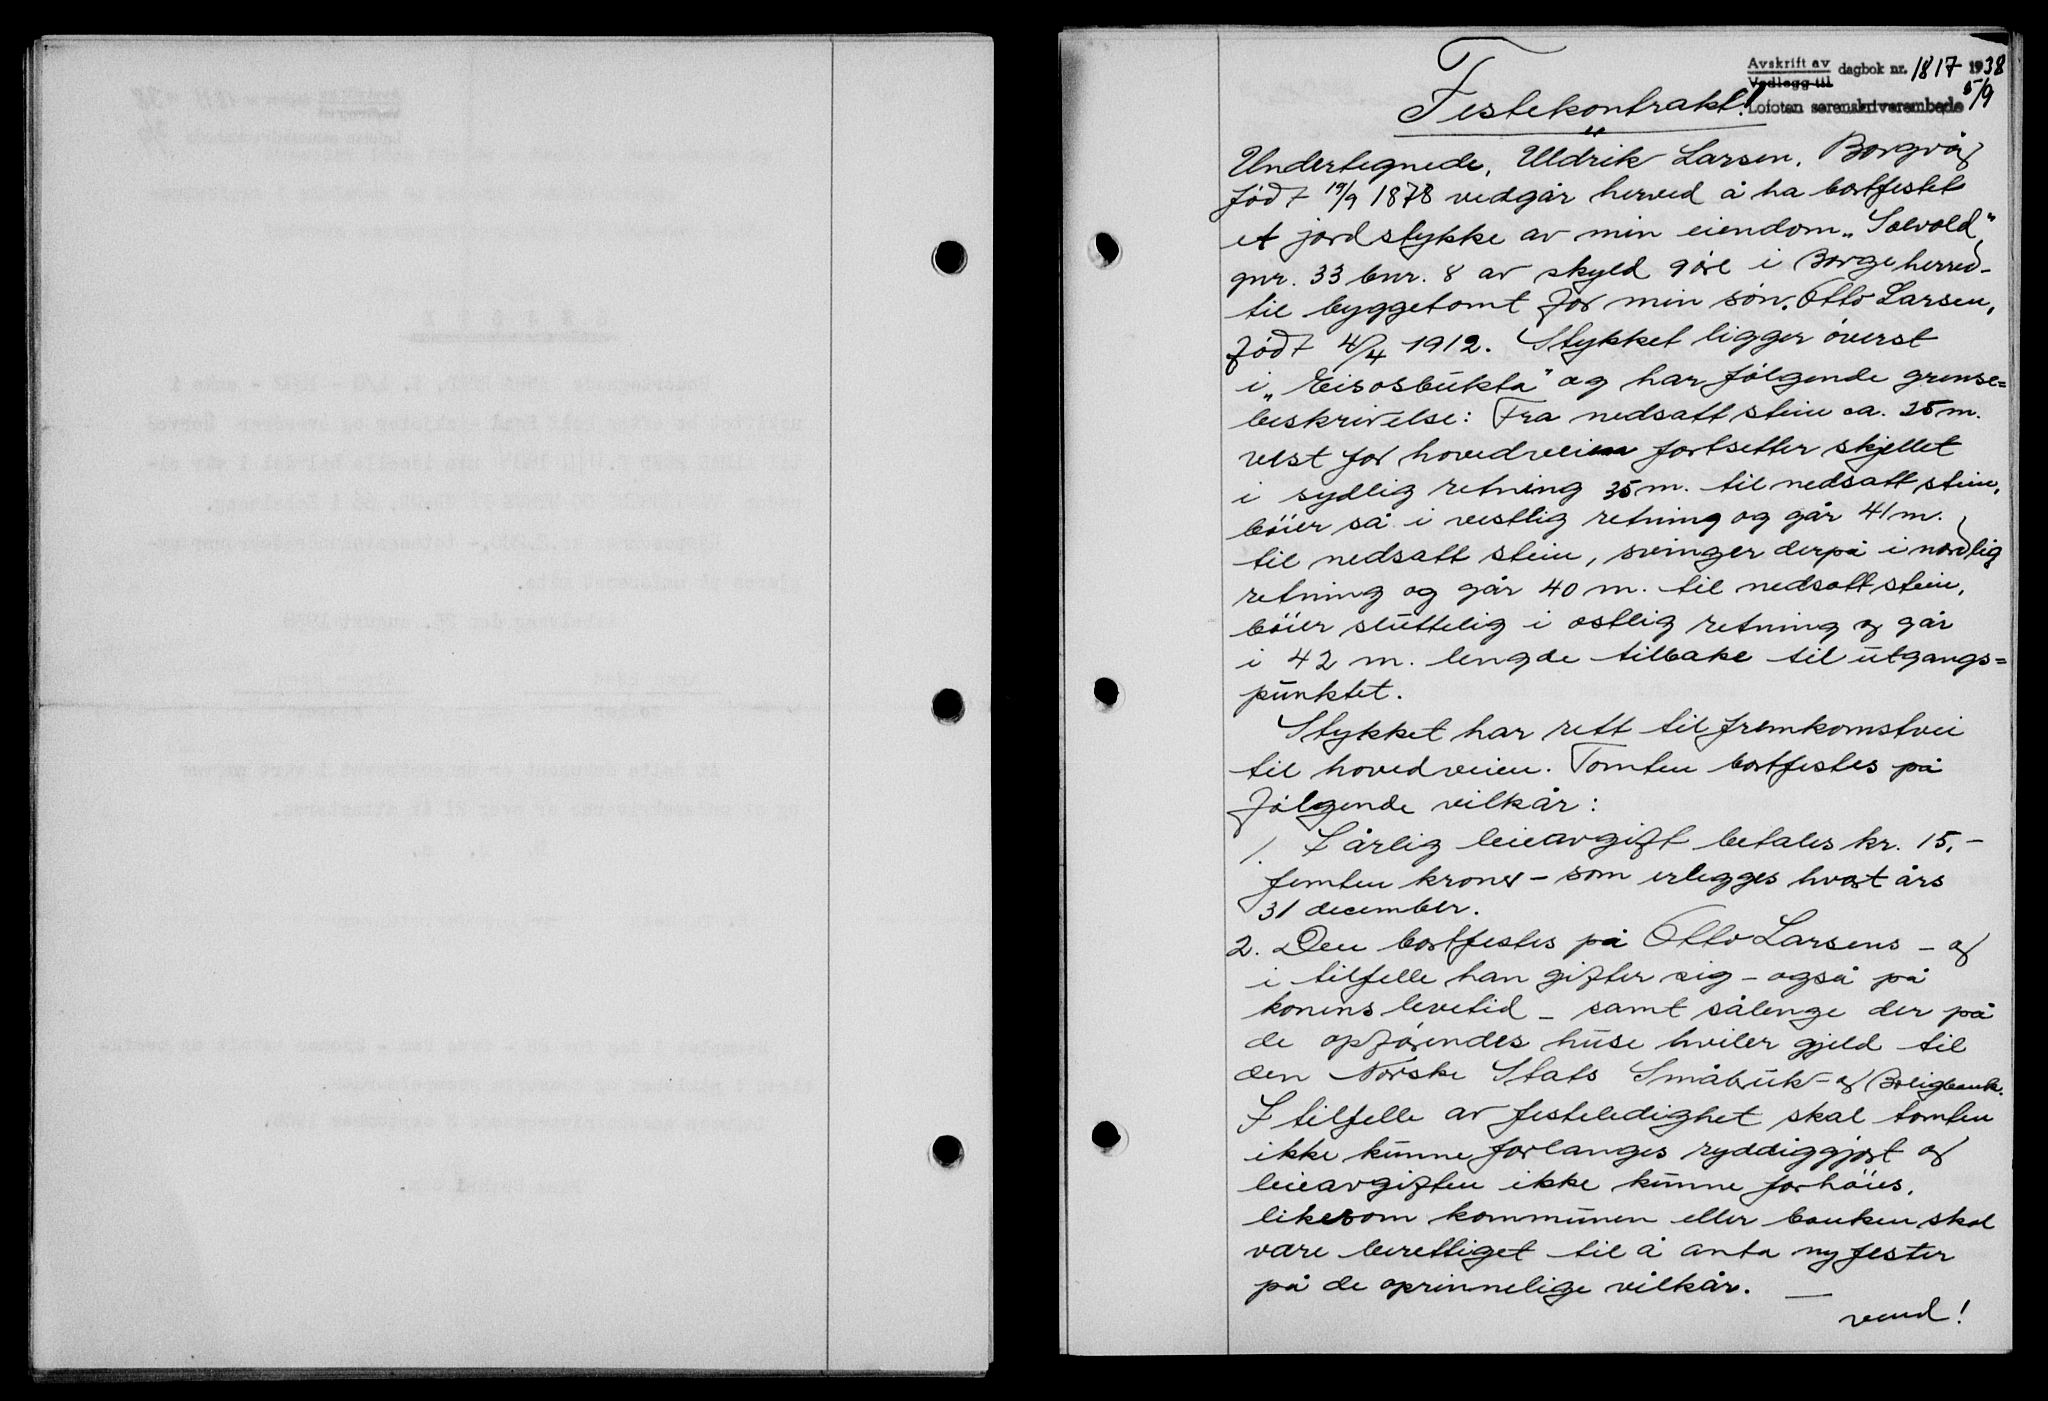 Avskrift av dagbok nr. 1817 1938
Vedlegg til 5/9
Lofoten sorenskriverembede
Festekontrakt!
Undertegnede, Uldrik Larsen, Borgvåg
født 19/9 1878 vedgår herved å ha bortfestet
et jordstykke av min eiendom „Solvold",
gnr. 33 bnr. 8 av skyld 9 øre i Borge herred-
til byggetomt for min søn, Otto Larsen,
født 4/4 1912. Stykket ligger øverst
i „Eisosbukta" og har følgende grense=
beskrivelse: Fra nedsatt stein ca. 25 m.
vest for hovedveien fortsetter skjellet
i sydlig retning 35 m. til nedsatt stein,
bøier så i vestlig retning og går 41 m.
til nedsatt stein, svinger derpå i nordlig
retning og går 40 m. til nedsatt stein,
bøier sluttelig i østlig retning og går
i 42 m. lengde tilbake til utgangs=
punktet.
Stykket har rett til fremkomstvei
til hovedveien. Tomten bortfestes på
følgende vilkår:
1. I årlig leieavgift betales kr. 15,-
femten kroner - som erlegges hvert års
31 december.
2. Den bortfestes på Otto Larsens - og
i tilfelle han gifter sig - også på
konens levetid - samt sålenge der på
de opførendes huse hviler gjeld til
den Norske Stats Småbruk- og Boligbank.
I tilfelle av festeledighet skal tomten
ikke kunne forlanges ryddiggjort og
leieavgiften ikke kunne forhøies,
likesom kommunen eller banken skal
være berettiget til å anta ny fester
på de oprinnelige vilkår. —
vend!